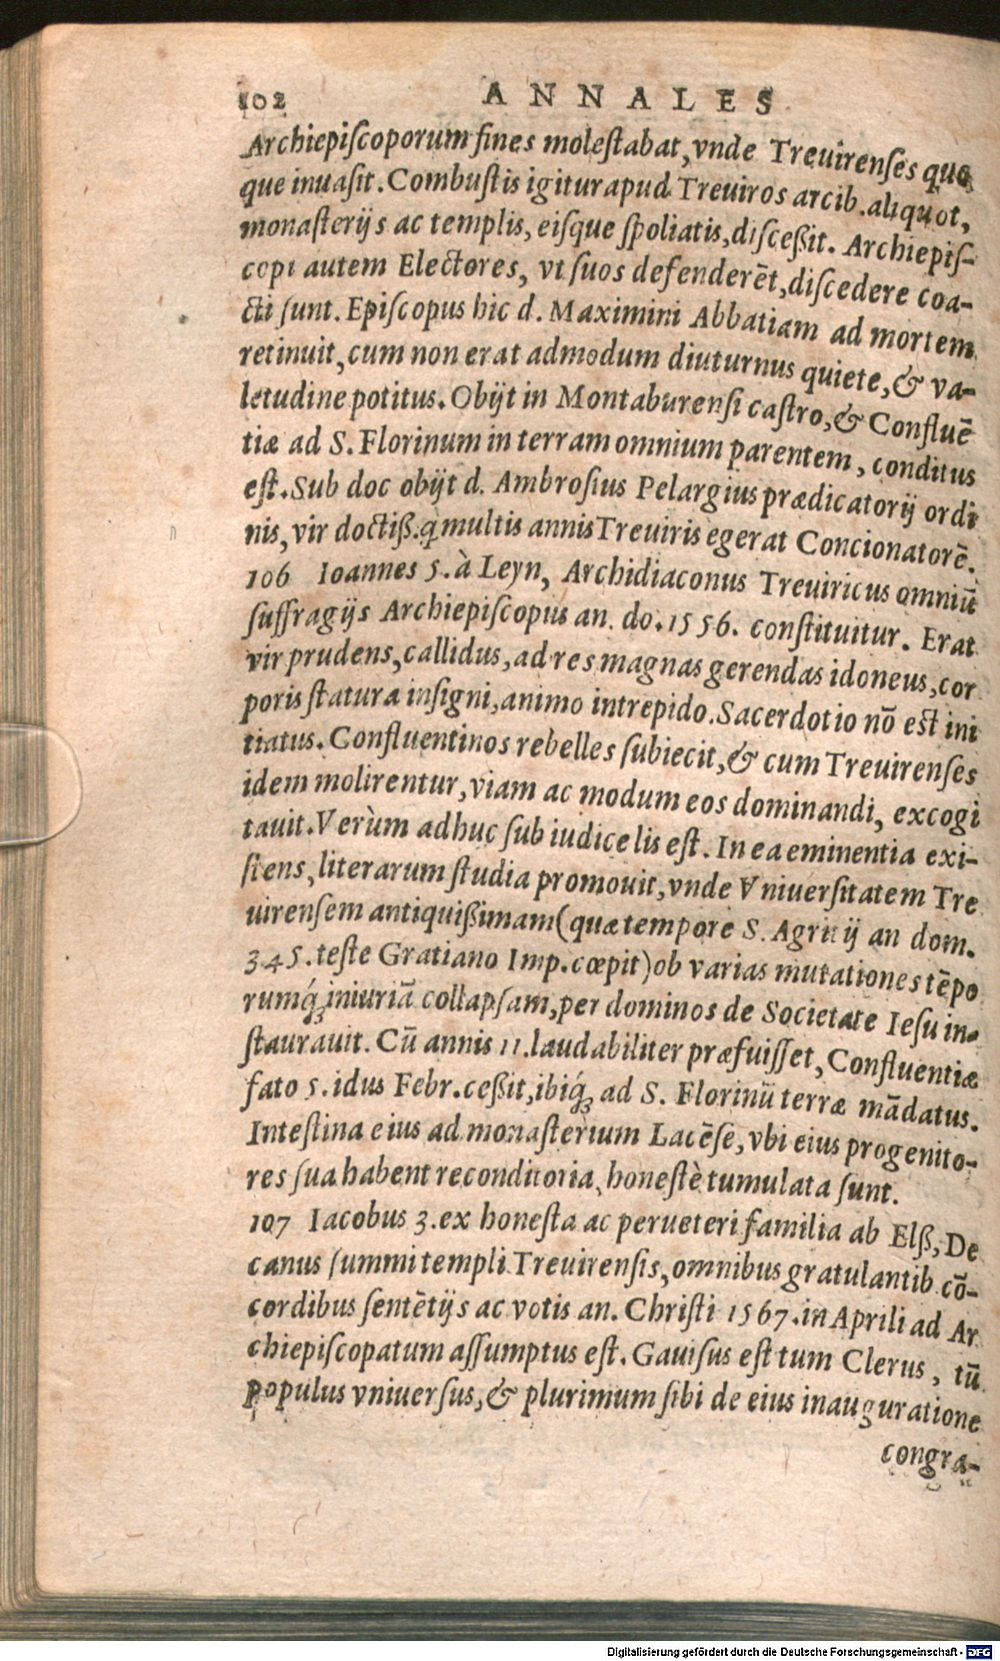 102 ANNALES
Archiepiſcoporum fines moleſtabat, vnde Treuirenſes quo
que inuaſit. Combuſtis igitur apud Treuiros arcib. aliquot,
monaſterijs ac templis, eiſque ſpoliatis, diſceßit. Archiepiſ-
copi autem Electores, vt ſuos defenderēt, diſcedere coa-
cti ſunt. Epiſcopus hic d. Maximini Abbatiam ad mortem
retinuit, cum non erat admodum diuturnus quiete, & va-
letudine potitus. Obijt in Montaburenſi caſtro, & Confluē
tiæ ad S. Florinum in terram omnium parentem, conditus
eſt. Sub doc obijt d. Ambroſius Pelargius prædicatorij ordi
nis, vir doctiß. q̃ multis annis Treuiris egerat Concionatorē.
106 Ioannes 5. à Leyn, Archidiaconus Treuiricus omniū
ſuffragijs Archiepiſcopus an. do. 1556. conſtituitur. Erat
vir prudens, callidus, ad res magnas gerendas idoneus, cor
poris ſtatura inſigni, animo intrepido. Sacerdotio nō eſt ini
tiatus. Confluentinos rebelles ſubiecit, & cum Treuirenſes
idem molirentur, viam ac modum eos dominandi, excogi
tauit. Verùm adhuc ſub iudice lis eſt. In ea eminentia exi-
ſtens, literarum ſtudia promouit, vnde Vniuerſitatem Tre
uirenſem antiquißimam (quæ tempore S. Agritij an dom.
345. teſte Gratiano Imp. cœpit) ob varias mutationes tēpo
rumq́ꝫ iniuriā collapſam, per dominos de Societate Ieſu in-
ſtaurauit. Cū annis 11. laudabiliter præfuiſſet, Confluentiæ
fato 5. idus Febr. ceßit, ibiq́ꝫ ad S. Florinū terræ mādatus.
Inteſtina eius ad monaſterium Lacēſe, vbi eius progenito-
res ſua habent reconditoria, honeſtè tumulata ſunt.
107 Iacobus 3. ex honeſta ac perueteri familia ab Elß, De
canus ſummi templi Treuirenſis, omnibus gratulantib. cō-
cordibus ſentētijs ac votis an. Chriſti 1567. in Aprili ad Ar
chiepiſcopatum aſſumptus eſt. Gauiſus eſt tum Clerus, tū
populus vniuerſus, & plurimum ſibi de eius inauguratione
congra-
Digitalisierung gefördert durch die Deutsche Forschungsgemeinschaft - DFG